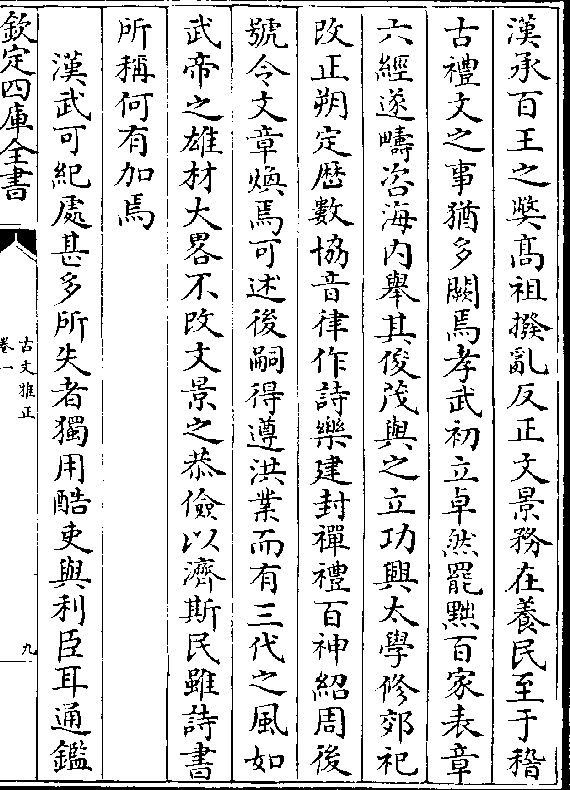 漢承百王之獘髙祖撥亂反正文景務在養民至于稽
古禮文之事猶多闕焉孝武初立卓然罷黜百家表章
六經遂疇咨海内舉其俊茂與之立功興太學修郊祀
改正朔定厯數協音律作詩樂建封禪禮百神紹周後
號令文章煥焉可述後嗣得遵洪業而有三代之風如
武帝之雄材大畧不改文景之恭儉以濟斯民雖詩書
所稱何有加焉
漢武可紀處甚多所失者獨用酷吏與利臣耳通鑑
欽定四庫全書
古文雅正
卷一
九